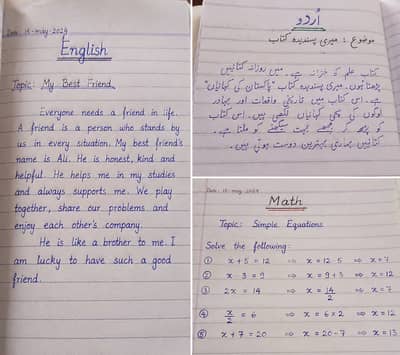 Date: 15-may-2024
English
Topic: My Best Friend
Everyone needs a friend in life.
A friend is a person who stands by
us in every situation. My best friend's
name is Ali. He is honest, kind and
helpful. He helps me in my studies
and always supports me. We play
together, share our problems and
enjoy each other's company.
He is like a brother to me. I
am lucky to have such a good
friend.
اُردُو
موضوع : میری پسندیدہ کتاب
کتاب علم کا خزانہ ہے۔ میں روزانہ کتابیں
پڑھتا ہوں۔ میری پسندیدہ کتاب "پاکستان کی کہانیاں"
ہے۔ اس کتاب میں تاریخی واقعات اور بہادر
لوگوں کی سچی کہانیاں لکھی ہیں۔ اس کتاب
کو پڑھ کر مجھے بہت سیکھنے کو ملتا ہے۔
کتابیں ہماری بہترین دوست ہوتی ہیں۔
Date: 15-may-2024
Math
Topic: Simple Equations
Solve the following:
① x + 5 = 12 ⇒ x = 12 5 ⇒ x = 7
② x 3 = 9 ⇒ x = 9 + 3 ⇒ x = 12
③ 2x = 14 ⇒ x = 14/2 ⇒ x = 7
④ x/2 = 6 ⇒ x = 6 × 2 ⇒ x = 12
⑤ x + 7 = 20 ⇒ x = 20 - 7 ⇒ x = 13